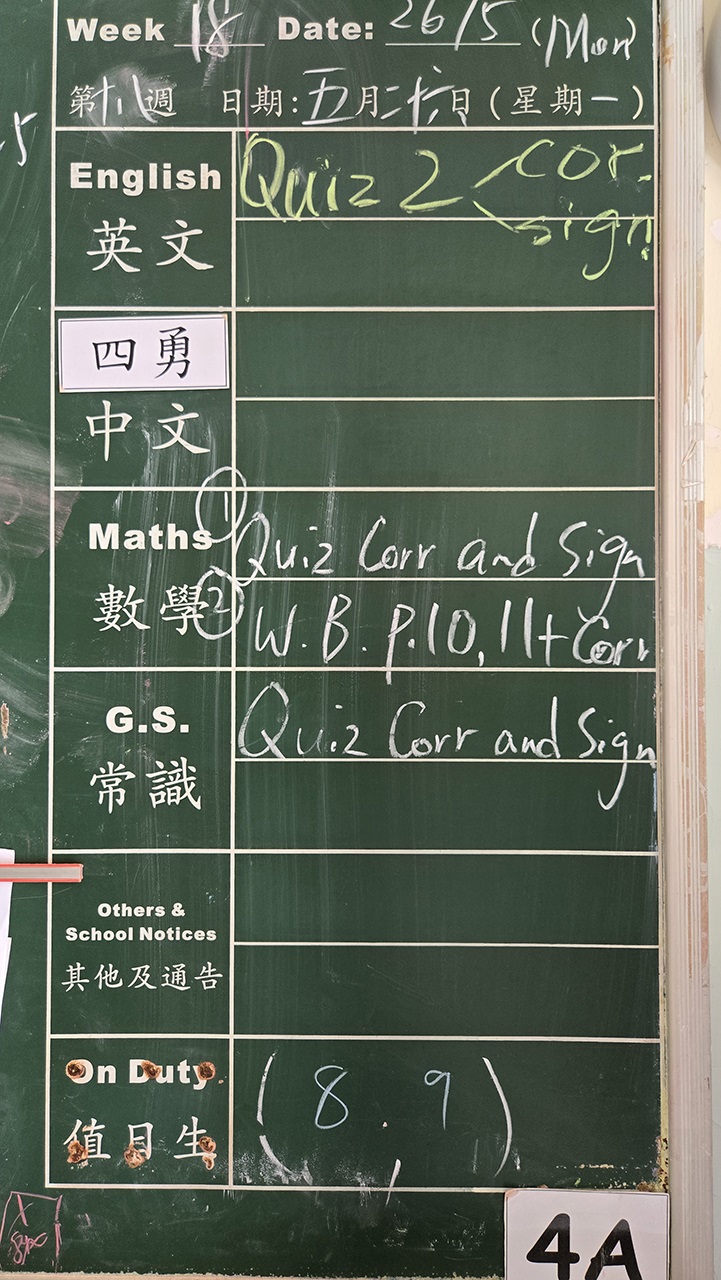 Week 18 Date: 26/5 (Mon)
第十八週 日期:五月二十六日(星期一)
English Quiz 2 cor.
英文 sign
四勇
中文
Maths ① Quiz Corr and Sign
數學 ② W.B. P.10, 11 + Corr
G.S. Quiz Corr and Sign
常識
Others &
School Notices
其他及通告
On Duty (8.9)
值日生
4A